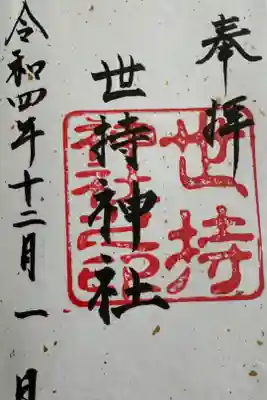 奉拝
世持神社
令和四年十二月一日
世持